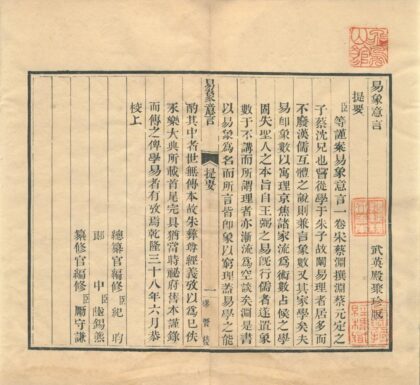 易象意言
武英殿聚珍版
提要
臣等謹案易象意言一卷宋蔡淵撰淵蔡元定之
子蔡沈兄也嘗從學于朱子故闡易理者居多而
不廢漢儒互體之說則兼言象數又其家學矣夫
易卽象數以寓理京焦諸家流爲術數占候之學
固失聖人之本旨自王弼之易旣行儒者遂置象
數于不講而所謂理者亦漸流爲空談矣淵是書
以易象爲名而所言皆卽象以窮理蓋易學之能
易象意言
提要
一
酌其中者世無傳本故朱彝尊經義攷以爲巳佚
永樂大典所載首尾完具猶當時祕府舊本謹錄
而傳之俾學易者有攷焉乾隆三十八年六月恭
校上
總纂官編修臣紀昀
郎中臣陸錫熊
纂修官編修臣勵守謙